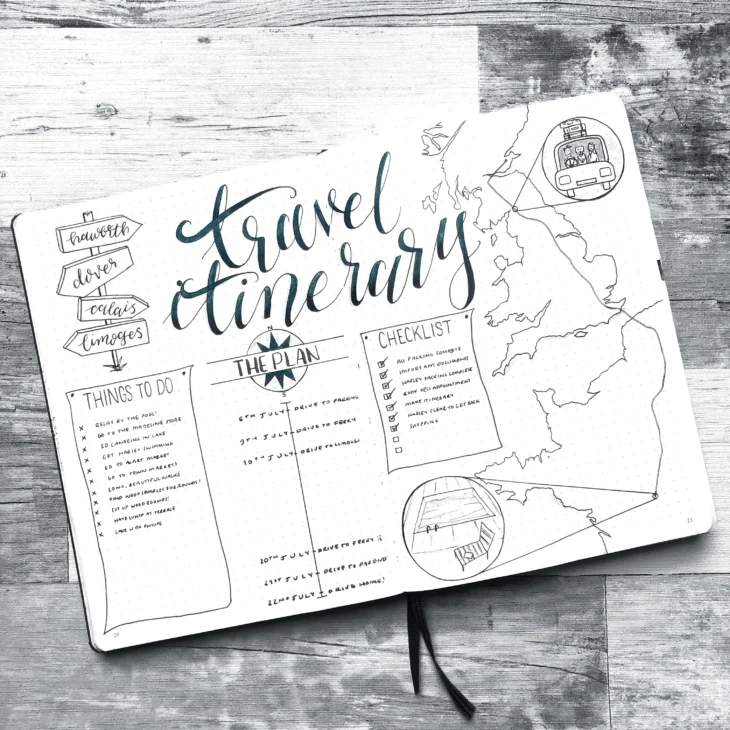 travel
itinerary
haworth
dover
calais
limoges
THINGS TO DO
x RELAX BY THE POOL!
x GO TO THE MADELINE STORE
x GO CANOEING IN LAKE
x GET HARLEY SWIMMING
x GO TO NIGHT MARKET
x GO TO TOWN MARKETS
x LONG, BEAUTIFUL WALKS
x FOOD
x CUT UP WOOD ROUNDS!
x HAVE LUNCH AT TERRACE
x LAKE
N
THE PLAN
S
8TH JULY - DRIVE TO PARENS
9TH JULY - DRIVE TO FERRY
10TH JULY - DRIVE TO LIMOGES
20TH JULY - DRIVE TO FERRY
21ST JULY - DRIVE TO PARENTS
22ND JULY - DRIVE HOME!
CHECKLIST
ALL PACKING COMPLETE
IMPORTANT DOCUMENTS
HARLEY PACKING COMPLETE
BOOK APPOINTMENT
MAKE ITINERARY
HARLEY CLEAR TO GET BACK
SHOPPING
20
21